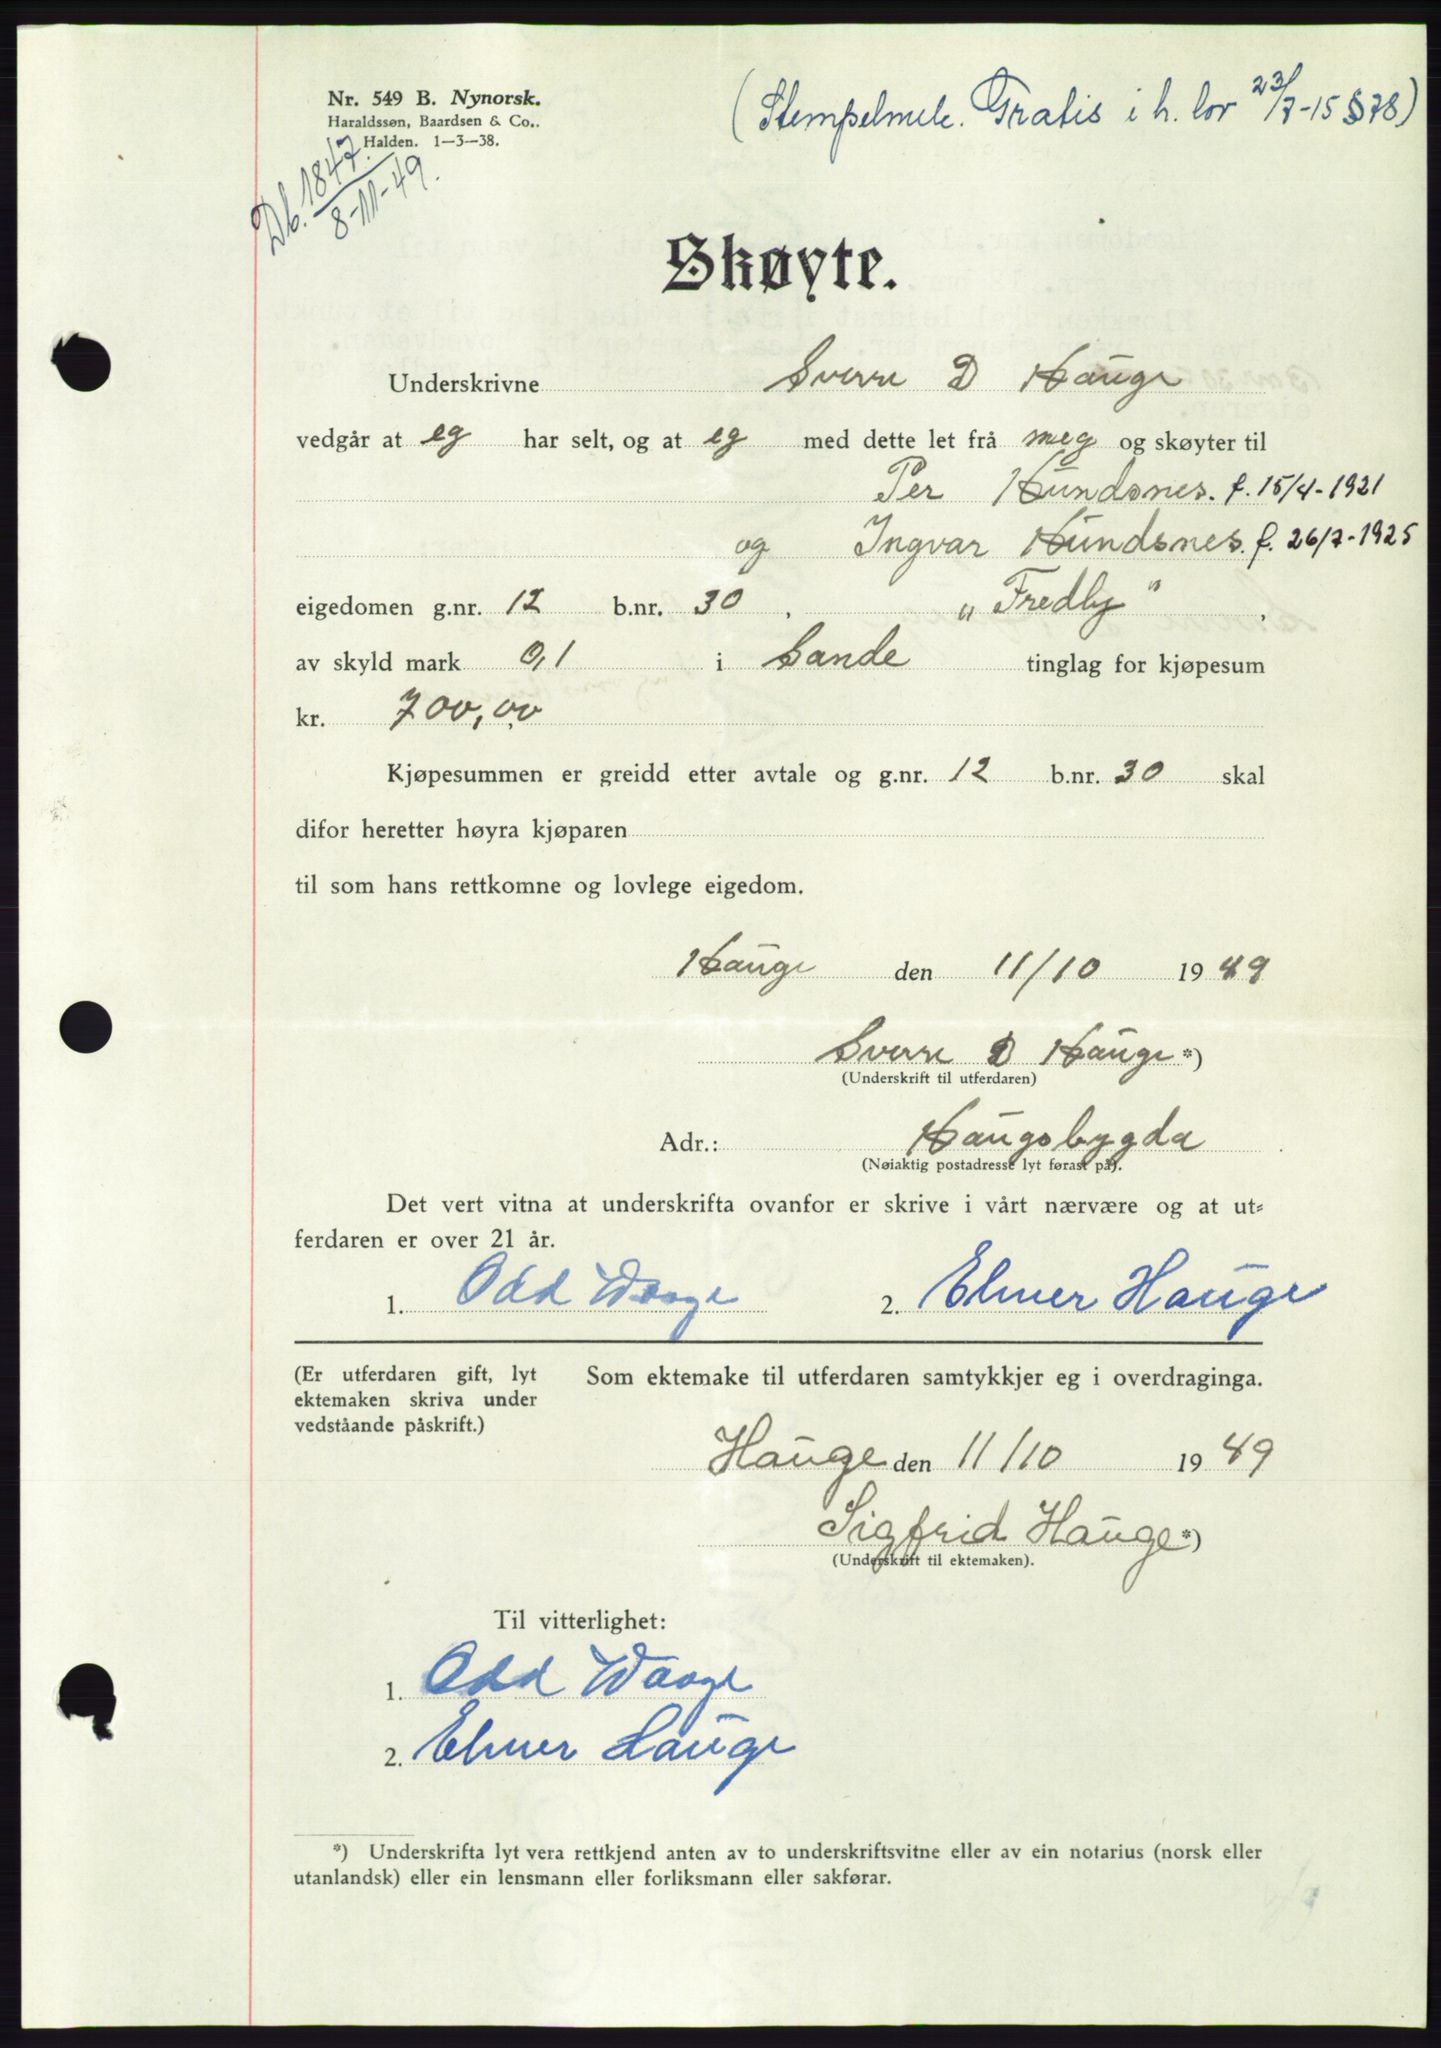 Nr. 549 B. Nynorsk.
Haraldssøn, Baardsen & Co..
Halden. 1—3—38.
(Stempelmerk. Gratis i h. lov 23/7-15 § 78)
Db. 1847.
8-11-49.
Skøyte.
Underskrivne Sverre D Hauge
vedgår at eg har selt, og at eg med dette let frå meg og skøyter til
Per Hundsnes. f. 15/4-1921
og Ingvar Hundsnes. f. 26/7-1925
eigedomen g.nr. 12 b.nr. 30, „Fredly",
av skyld mark 0,1 i Sande tinglag for kjøpesum
kr. 700,00
Kjøpesummen er greidd etter avtale og g.nr. 12 b.nr. 30 skal
difor heretter høyra kjøparen
til som hans rettkomne og lovlege eigedom.
Hauge den 11/10 1949
Sverre D Hauge *)
(Underskrift til utferdaren)
Adr.: Haugsbygda
(Nøiaktig postadresse lyt førast på).
Det vert vitna at underskrifta ovanfor er skrive i vårt nærvære og at ut-
ferdaren er over 21 år.
1. Odd Waage 2. Elmer Hauge
(Er utferdaren gift, lyt
ektemaken skriva under
vedståande påskrift.)
Som ektemake til utferdaren samtykkjer eg i overdraginga.
Hauge den 11/10 1949
Sigfrid Hauge *)
(Underskrift til ektemaken).
Til vitterlighet:
1. Odd Waage
2. Elmer Hauge
*) Underskrifta lyt vera rettkjend anten av to underskriftsvitne eller av ein notarius (norsk eller
utanlandsk) eller ein lensmann eller forliksmann eller sakførar.